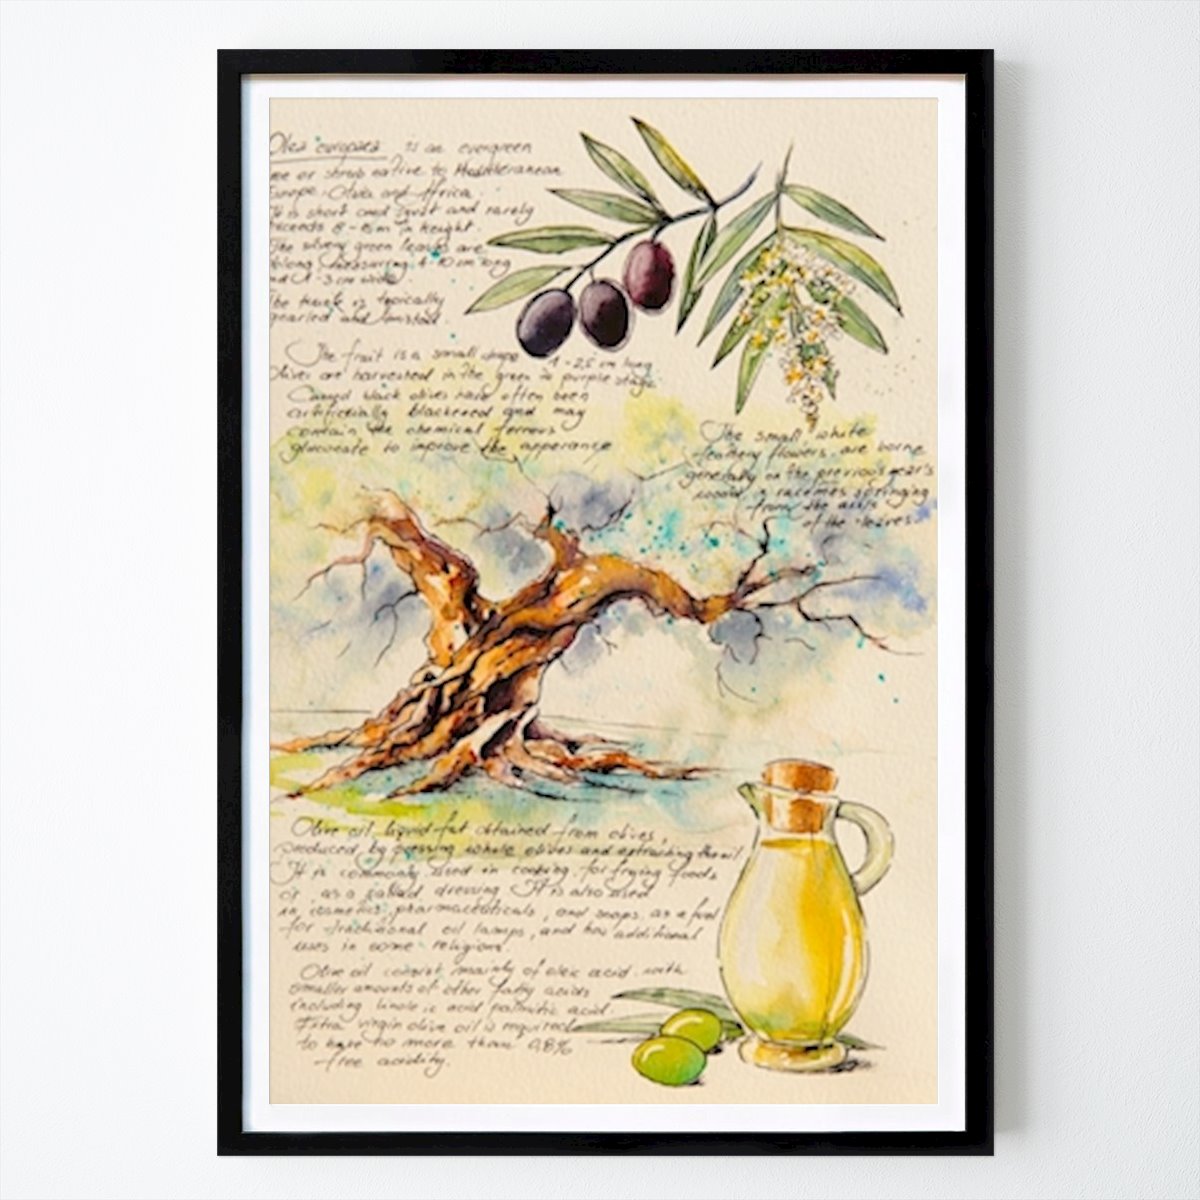 Olea europaea is an evergreen
ree or shrub native to Mediterranean
Europe, Asia and Africa.
It is short and squat and rarely
exceeds 8-15m in height.
The silvery green leaves are
oblong measuring 4-10 cm long
and 1-3 cm wide.
The trunk is typically
gnarled and twisted.
The fruit is a small drupe 1-2,5 cm long
Olives are harvested in the green to purple stage.
Canned black olives have often been
artificially blackened and may
contain the chemical ferrous
gluconate to improve the apperance
The small white
feathery flowers, are borne
generally on the previous year's
wood, in racemes springing
from the axils
of the leaves.
Olive oil, liquid fat obtained from olives,
produced by pressing whole olives and extracting the oil.
It is commonly used in cooking, for frying foods
or as a salad dressing. It is also used
in cosmetics, pharmaceuticals, and soaps, as a fuel
for traditional oil lamps, and has additional
uses in some religions.
Olive oil consist mainly of oleic acid with
smaller amounts of other fatty acids
including linoleic acid palmitic acid.
Extra virgin olive oil is required
to have no more than 0,8%
free acidity.